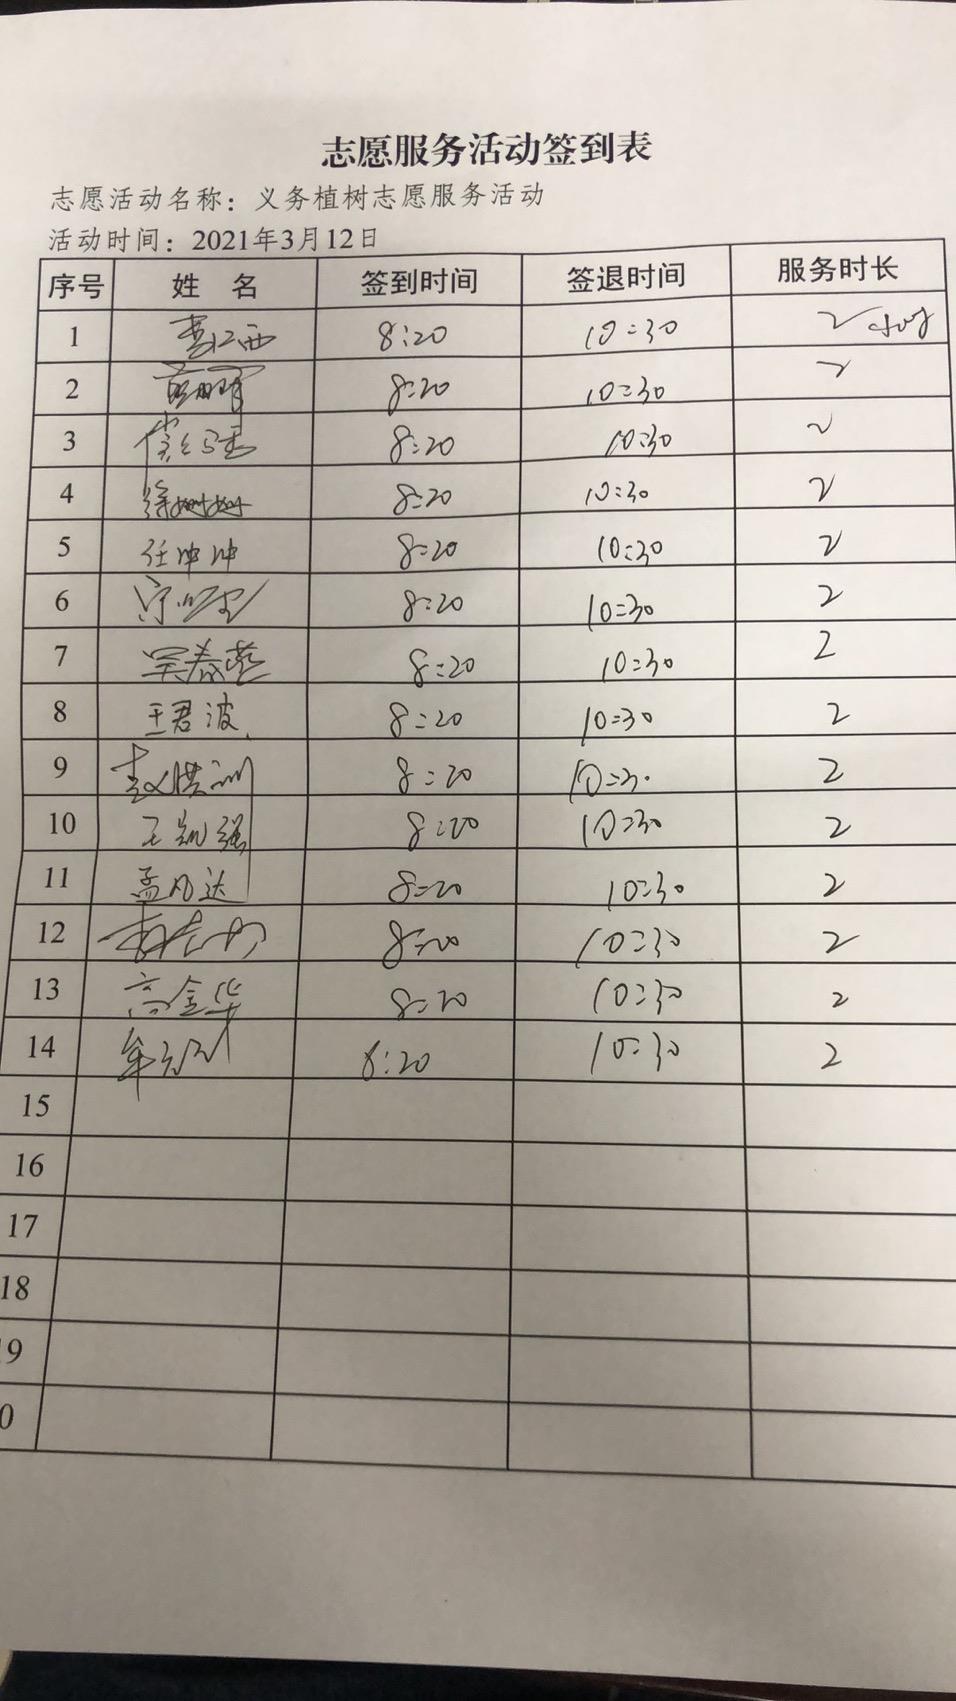 志愿服务活动签到表
志愿活动名称：义务植树志愿服务活动
活动时间：2021年3月12日
序号 姓 名 签到时间 签退时间 服务时长
1 8:20 10:30 2小时
2 8:20 10:30 2
3 8:20 10:30 2
4 徐姗姗 8:20 10:30 2
5 任坤坤 8:20 10:30 2
6 8:20 10:30 2
7 吴春燕 8:20 10:30 2
8 王君波 8:20 10:30 2
9 赵洪训 8:20 10:30 2
10 王凯强 8:20 10:30 2
11 孟凡达 8:20 10:30 2
12 8:20 10:30 2
13 高金华 8:20 10:30 2
14 8:20 10:30 2
15
16
17
18
9
0